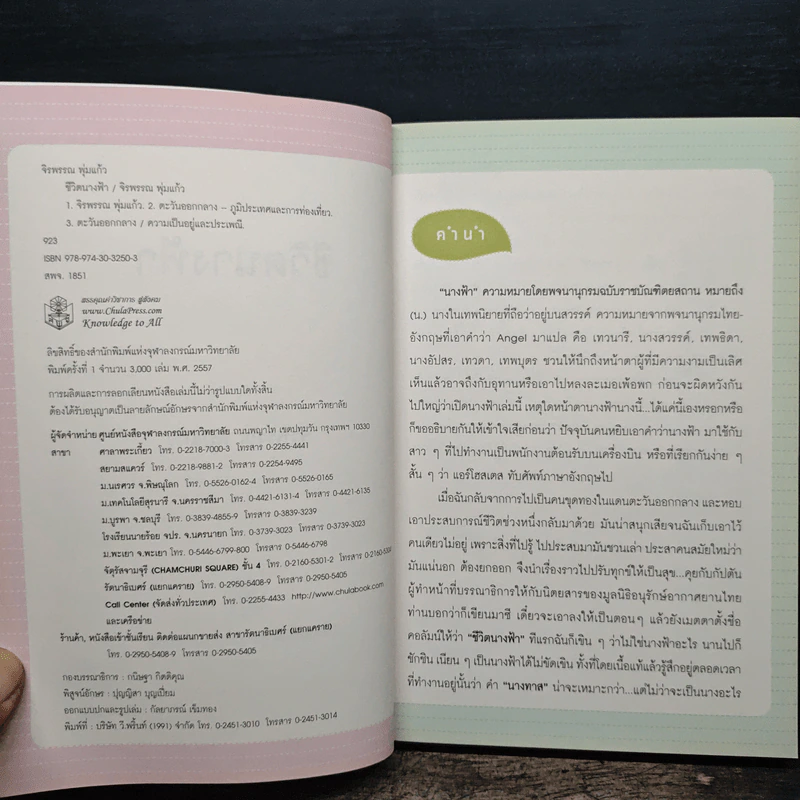 จิรพรรณ พุ่มแก้ว
ชีวิตนางฟ้า / จิรพรรณ พุ่มแก้ว
1. จิรพรรณ พุ่มแก้ว. 2. ตะวันออกกลาง – ภูมิประเทศและการท่องเที่ยว.
3. ตะวันออกกลาง / ความเป็นอยู่และประเพณี.
923
ISBN 978-974-30-3250-3
สพจ. 1851
สรรคุณค่าวิชาการ สู่สังคม
www.ChulaPress.com
Knowledge to All
ลิขสิทธิ์ของสำนักพิมพ์แห่งจุฬาลงกรณ์มหาวิทยาลัย
พิมพ์ครั้งที่ 1 จำนวน 3,000 เล่ม พ.ศ. 2557
การผลิตและการลอกเลียนหนังสือเล่มนี้ไม่ว่ารูปแบบใดทั้งสิ้น
ต้องได้รับอนุญาตเป็นลายลักษณ์อักษรจากสำนักพิมพ์แห่งจุฬาลงกรณ์มหาวิทยาลัย
ผู้จัดจำหน่าย ศูนย์หนังสือจุฬาลงกรณ์มหาวิทยาลัย ถนนพญาไท เขตปทุมวัน กรุงเทพฯ 10330
สาขา ศาลาพระเกี้ยว โทร. 0-2218-7000-3 โทรสาร 0-2255-4441
สยามสแควร์ โทร. 0-2218-9881-2 โทรสาร 0-2254-9495
ม.นเรศวร จ.พิษณุโลก โทร. 0-5526-0162-4 โทรสาร 0-5526-0165
ม.เทคโนโลยีสุรนารี จ.นครราชสีมา โทร. 0-4421-6131-4 โทรสาร 0-4421-6135
ม.บูรพา จ.ชลบุรี โทร. 0-3839-4855-9 โทรสาร 0-3839-3239
โรงเรียนนายร้อย จปร. จ.นครนายก โทร. 0-3739-3023 โทรสาร 0-3739-3023
ม.พะเยา จ.พะเยา โทร. 0-5446-6799-800 โทรสาร 0-5446-6798
จัตุรัสจามจุรี (CHAMCHURI SQUARE) ชั้น 4 โทร. 0-2160-5301-2 โทรสาร 0-2160-5304
รัตนาธิเบศร์ (แยกแคราย) โทร. 0-2950-5408-9 โทรสาร 0-2950-5405
Call Center (จัดส่งทั่วประเทศ) โทร. 0-2255-4433 http://www.chulabook.com
และเครือข่าย
ร้านค้า, หนังสือเข้าชั้นเรียน ติดต่อแผนกขายส่ง สาขารัตนาธิเบศร์ (แยกแคราย)
โทร. 0-2950-5408-9 โทรสาร 0-2950-5405
กองบรรณาธิการ : กนิษฐา กิตติคุณ
พิสูจน์อักษร : ปุญญิสา บุญเปี่ยม
ออกแบบปกและรูปเล่ม : กัลยาภรณ์ เข็มทอง
พิมพ์ที่ : บริษัท วี.พริ้นท์ (1991) จำกัด โทร. 0-2451-3010 โทรสาร 0-2451-3014
คำนำ
"นางฟ้า" ความหมายโดยพจนานุกรมฉบับราชบัณฑิตยสถาน หมายถึง
(น.) นางในเทพนิยายที่ถือว่าอยู่บนสวรรค์ ความหมายจากพจนานุกรมไทย-
อังกฤษที่เอาคำว่า Angel มาแปล คือ เทวนารี, นางสวรรค์, เทพธิดา,
นางอัปสร, เทวดา, เทพบุตร ชวนให้นึกถึงหน้าตาผู้ที่มีความงามเป็นเลิศ
เห็นแล้วอาจถึงกับอุทานหรือเอาไปหลงละเมอเพ้อพก ก่อนจะผิดหวังกัน
ไปใหญ่ว่าเปิดนางฟ้าเล่มนี้ เหตุใดหน้าตานางฟ้านางนี้...ได้แค่นี้เองหรอกหรือ
ก็ขออธิบายกันให้เข้าใจเสียก่อนว่า ปัจจุบันคนหยิบเอาคำว่านางฟ้า มาใช้กับ
สาว ๆ ที่ไปทำงานเป็นพนักงานต้อนรับบนเครื่องบิน หรือที่เรียกกันง่าย ๆ
สั้น ๆ ว่า แอร์โฮสเตส ทับศัพท์ภาษาอังกฤษไป
เมื่อฉันกลับจากการไปเป็นคนขุดทองในแดนตะวันออกกลาง และหอบ
เอาประสบการณ์ชีวิตช่วงหนึ่งกลับมาด้วย มันน่าสนุกเสียจนฉันเก็บเอาไว้
คนเดียวไม่อยู่ เพราะสิ่งที่ไปรู้ ไปประสบมามันชวนเล่า ประสาคนสมัยใหม่ว่า
มันแน่นอก ต้องยกออก จึงนำเรื่องราวไปปรับทุกข์ให้เป็นสุข...คุยกับกัปตัน
ผู้ทำหน้าที่บรรณาธิการให้กับนิตยสารของมูลนิธิอนุรักษ์อากาศยานไทย
ท่านบอกว่าก็เขียนมาซี เดี๋ยวจะเอาลงให้เป็นตอนๆ แล้วยังเมตตาตั้งชื่อ
คอลัมน์ให้ว่า "ชีวิตนางฟ้า" ทีแรกฉันก็เขิน ๆ ว่าไม่ใช่นางฟ้าอะไร นานไปก็
ชักชิน เนียน ๆ เป็นนางฟ้าได้ไม่ขัดเขิน ทั้งที่โดยเนื้อแท้แล้วรู้สึกอยู่ตลอดเวลา
ที่ทำงานอยู่นั้นว่า คำ "นางทาส" น่าจะเหมาะกว่า...แต่ไม่ว่าจะเป็นนางอะไร